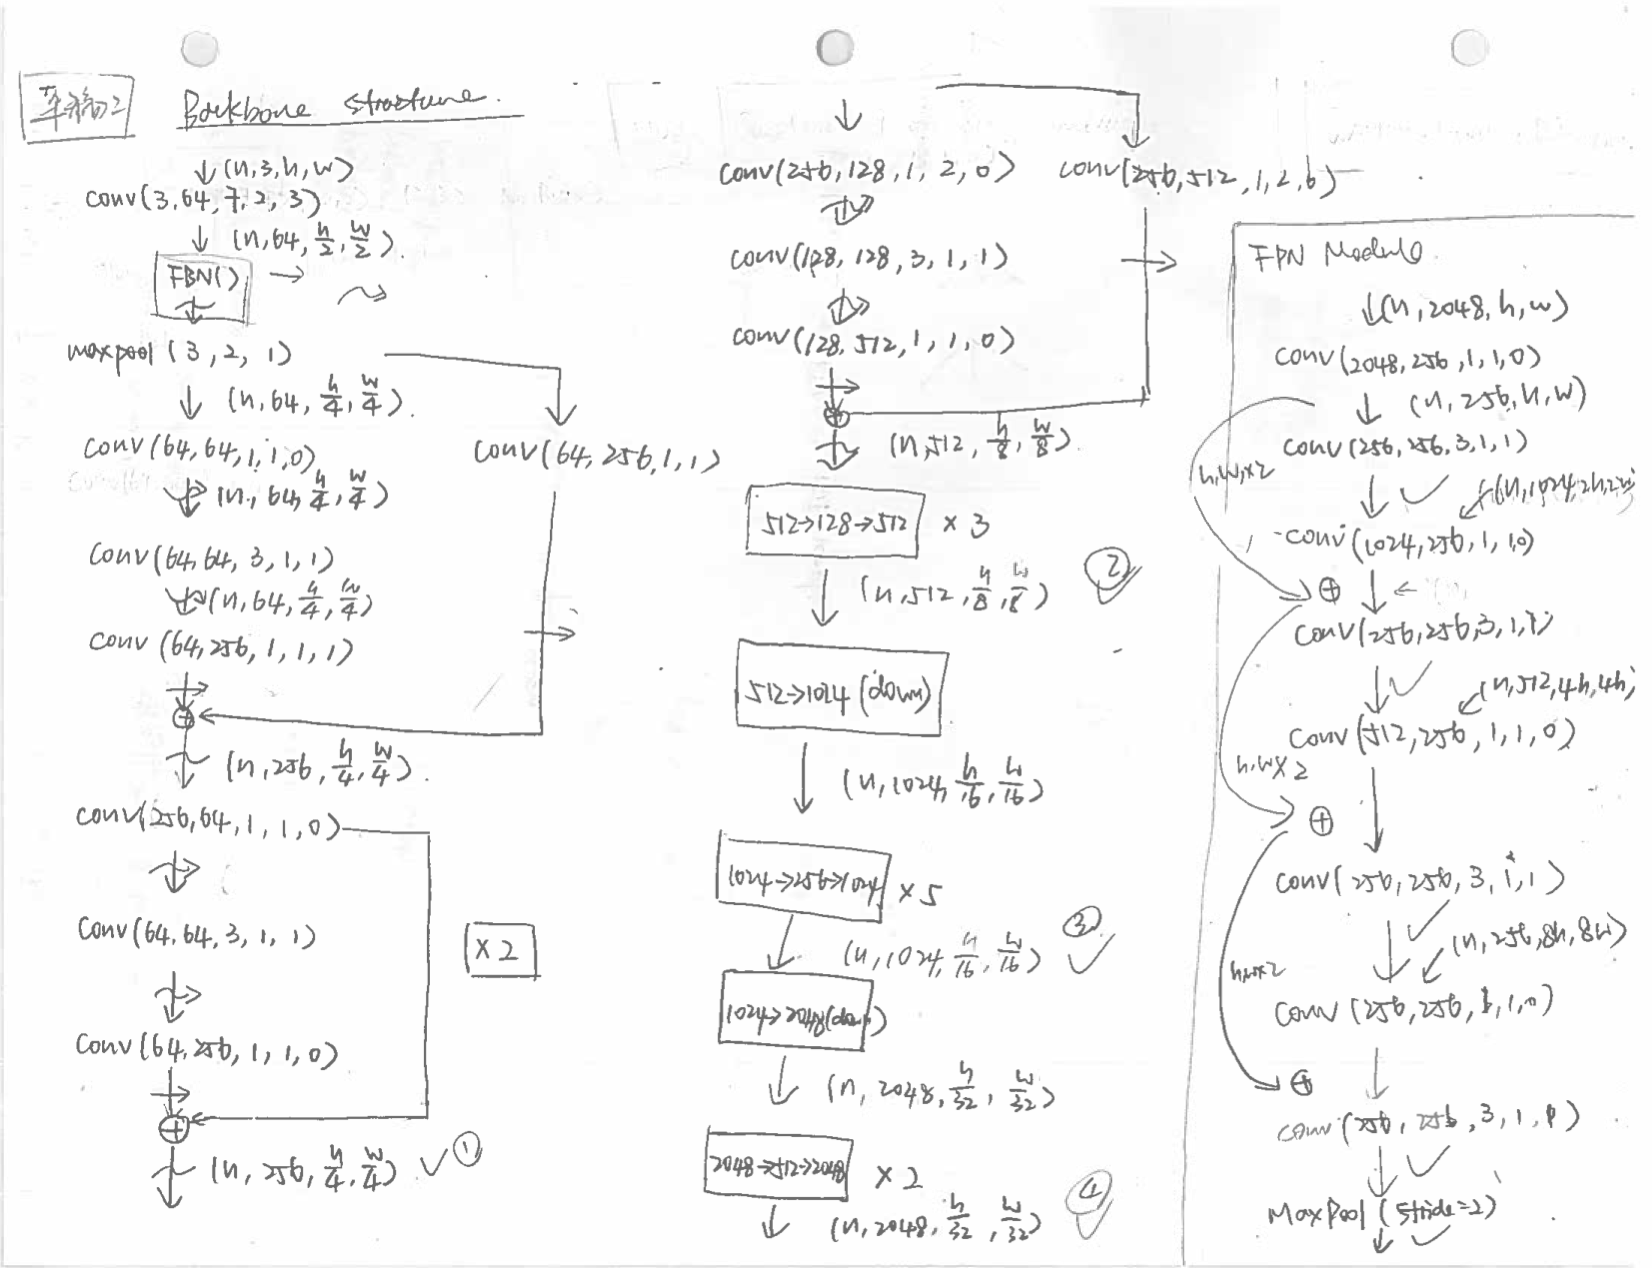 草稿2
Backbone structure.
(n,3,h,w)
conv(3,64,7,2,3)
(n,64,h/2,w/2).
FBN()
maxpool(3,2,1)
(n,64,h/4,w/4).
conv(64,64,1,1,0)
conv(64,256,1,1)
(n,64,h/4,w/4)
conv(64,64,3,1,1)
(n,64,h/4,w/4)
conv(64,256,1,1,1)
⊕
(n,256,h/4,w/4).
conv(256,64,1,1,0)
conv(64,64,3,1,1)
×2
conv(64,256,1,1,0)
⊕
(n,256,h/4,w/4) ✓ ①
conv(256,128,1,2,0)
conv(256,512,1,2,0)
conv(128,128,3,1,1)
conv(128,512,1,1,0)
⊕
(n,512,h/8,w/8).
512→128→512 ×3
(n,512,h/8,w/8) ② ✓
512→1024(down)
(n,1024,h/16,w/16)
1024→256→1024 ×5
(n,1024,h/16,w/16) ③ ✓
1024→2048(down)
(n,2048,h/32,w/32)
2048→512→2048 ×2
(n,2048,h/32,w/32) ④ ✓
FPN Module
(n,2048,h,w)
conv(2048,256,1,1,0)
(n,256,h,w)
conv(256,256,3,1,1)
h,w×2
✓ (n,1024,2h,2w)
conv(1024,256,1,1,0)
⊕
conv(256,256,3,1,1)
✓ (n,512,4h,4h)
conv(512,256,1,1,0)
h,w×2
⊕
conv(256,256,3,1,1)
✓ (n,256,8h,8w)
h,w×2
conv(256,256,1,1,0)
⊕
conv(256,256,3,1,1)
✓
MaxPool(stride=2)
✓